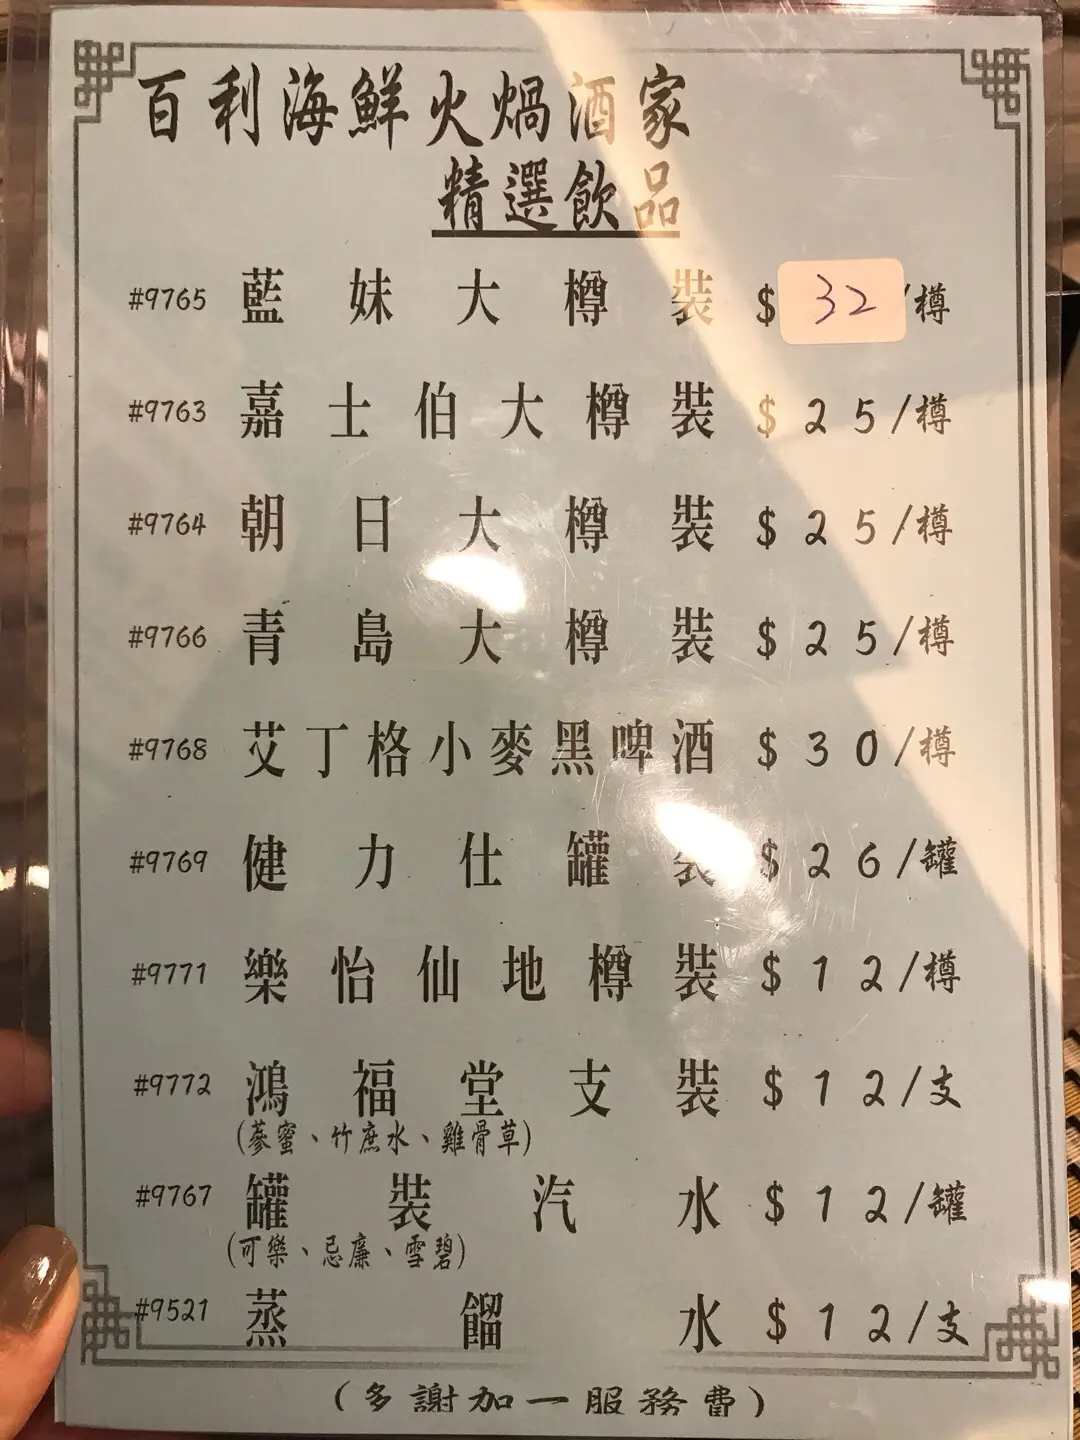 百利海鮮火煱酒家
精選飲品
#9765 藍妹大樽裝 $ 32 /樽
#9763 嘉士伯大樽裝 $25/樽
#9764 朝日大樽裝 $25/樽
#9766 青島大樽裝 $25/樽
#9768 艾丁格小麥黑啤酒 $30/樽
#9769 健力仕罐裝 $26/罐
#9771 樂怡仙地樽裝 $12/樽
#9772 鴻福堂支裝 $12/支
(蔘蜜、竹庶水、雞骨草)
#9767 罐裝汽水 $12/罐
(可樂、忌廉、雪碧)
#9521 蒸餾水 $12/支
(多謝加一服務費)